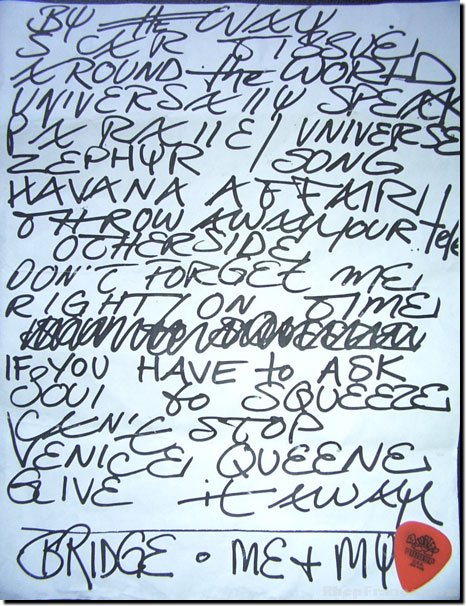 BY THE WAY
SCAR TISSUE
AROUND the WORLD
UNIVERSAllY SPEAK
PARAllEl UNIVERSE
ZEPHYR SONG
HAVANA AFFAIR
THROW AWAY YOUR tele
OTHERSIDE
DON'T FORGET ME
RIGHT ON TIME
IF YOU HAVE to ASK
SOUl to SQUEEZE
CAN'T STOP
VENICE QUEENE
GIVE it AWAY
BRIDGE • ME + MY